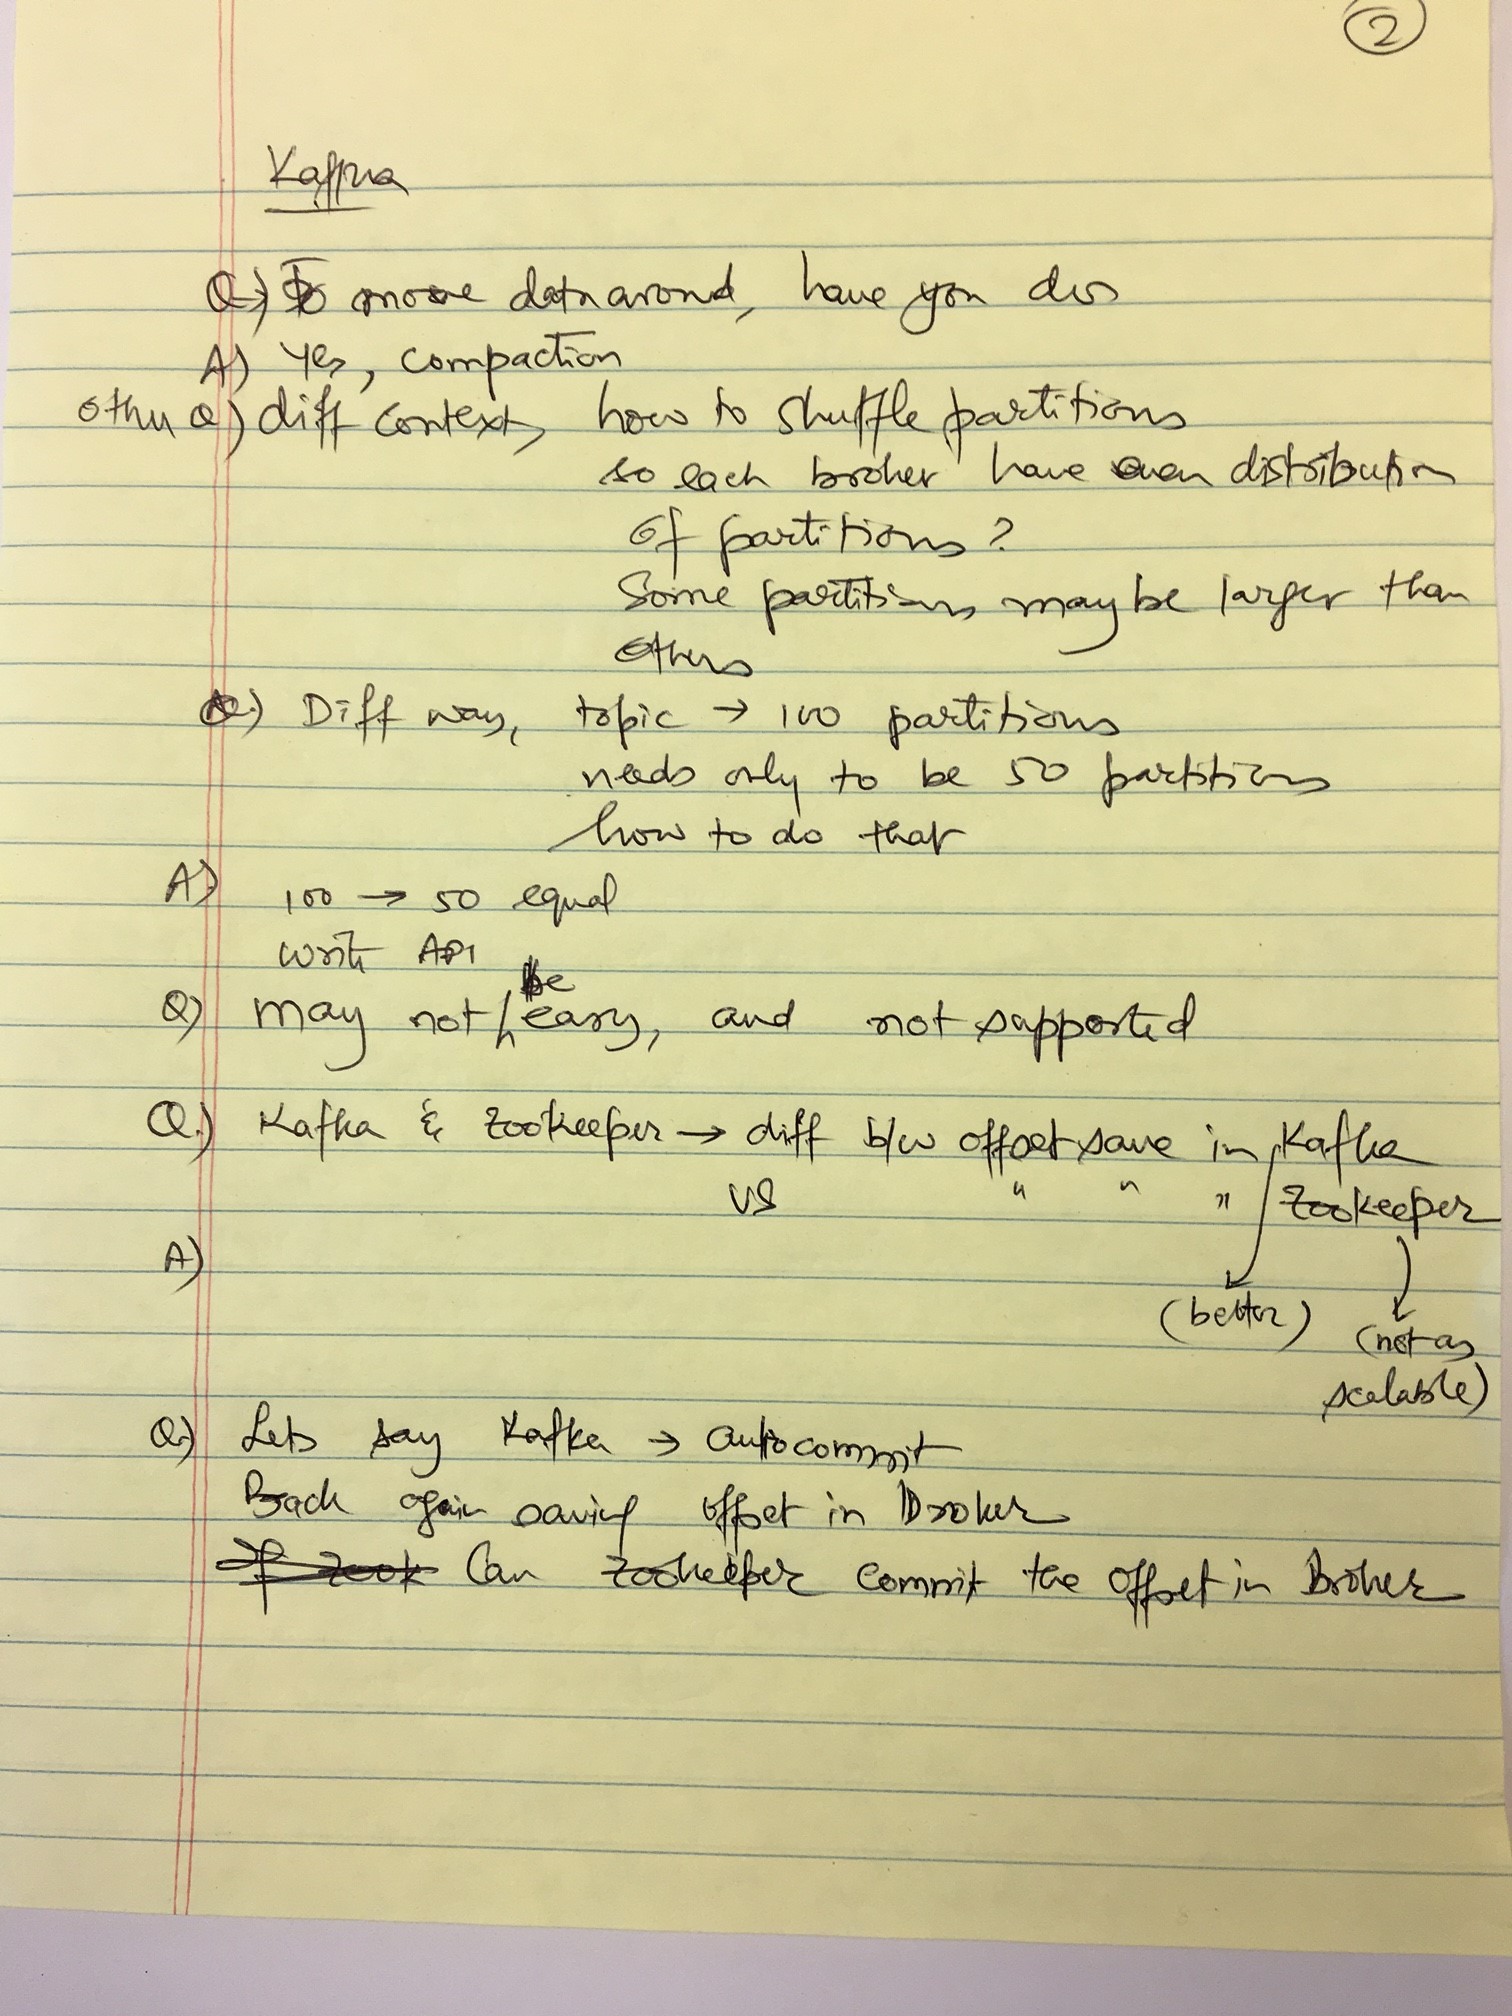 2
Kafka
Q) To move data around, have you
A) Yes, compaction
Other Q) diff context, how to shuffle partitions
so each broker have even distribution
of partitions?
Some partitions may be larger than
others
Q.) Diff way, topic → 100 partitions
needs only to be 50 partitions
how to do that
A) 100 → 50 equal
write API
Q) may not be easy, and not supported
Q.) Kafka & Zookeeper → diff b/w offset save in Kafka
vs " " " Zookeeper
A)
(better) (not as
scalable)
Q.) Lets say Kafka → autocommit
Back again saving offset in Broker
Can Zookeeper commit the offset in Broker